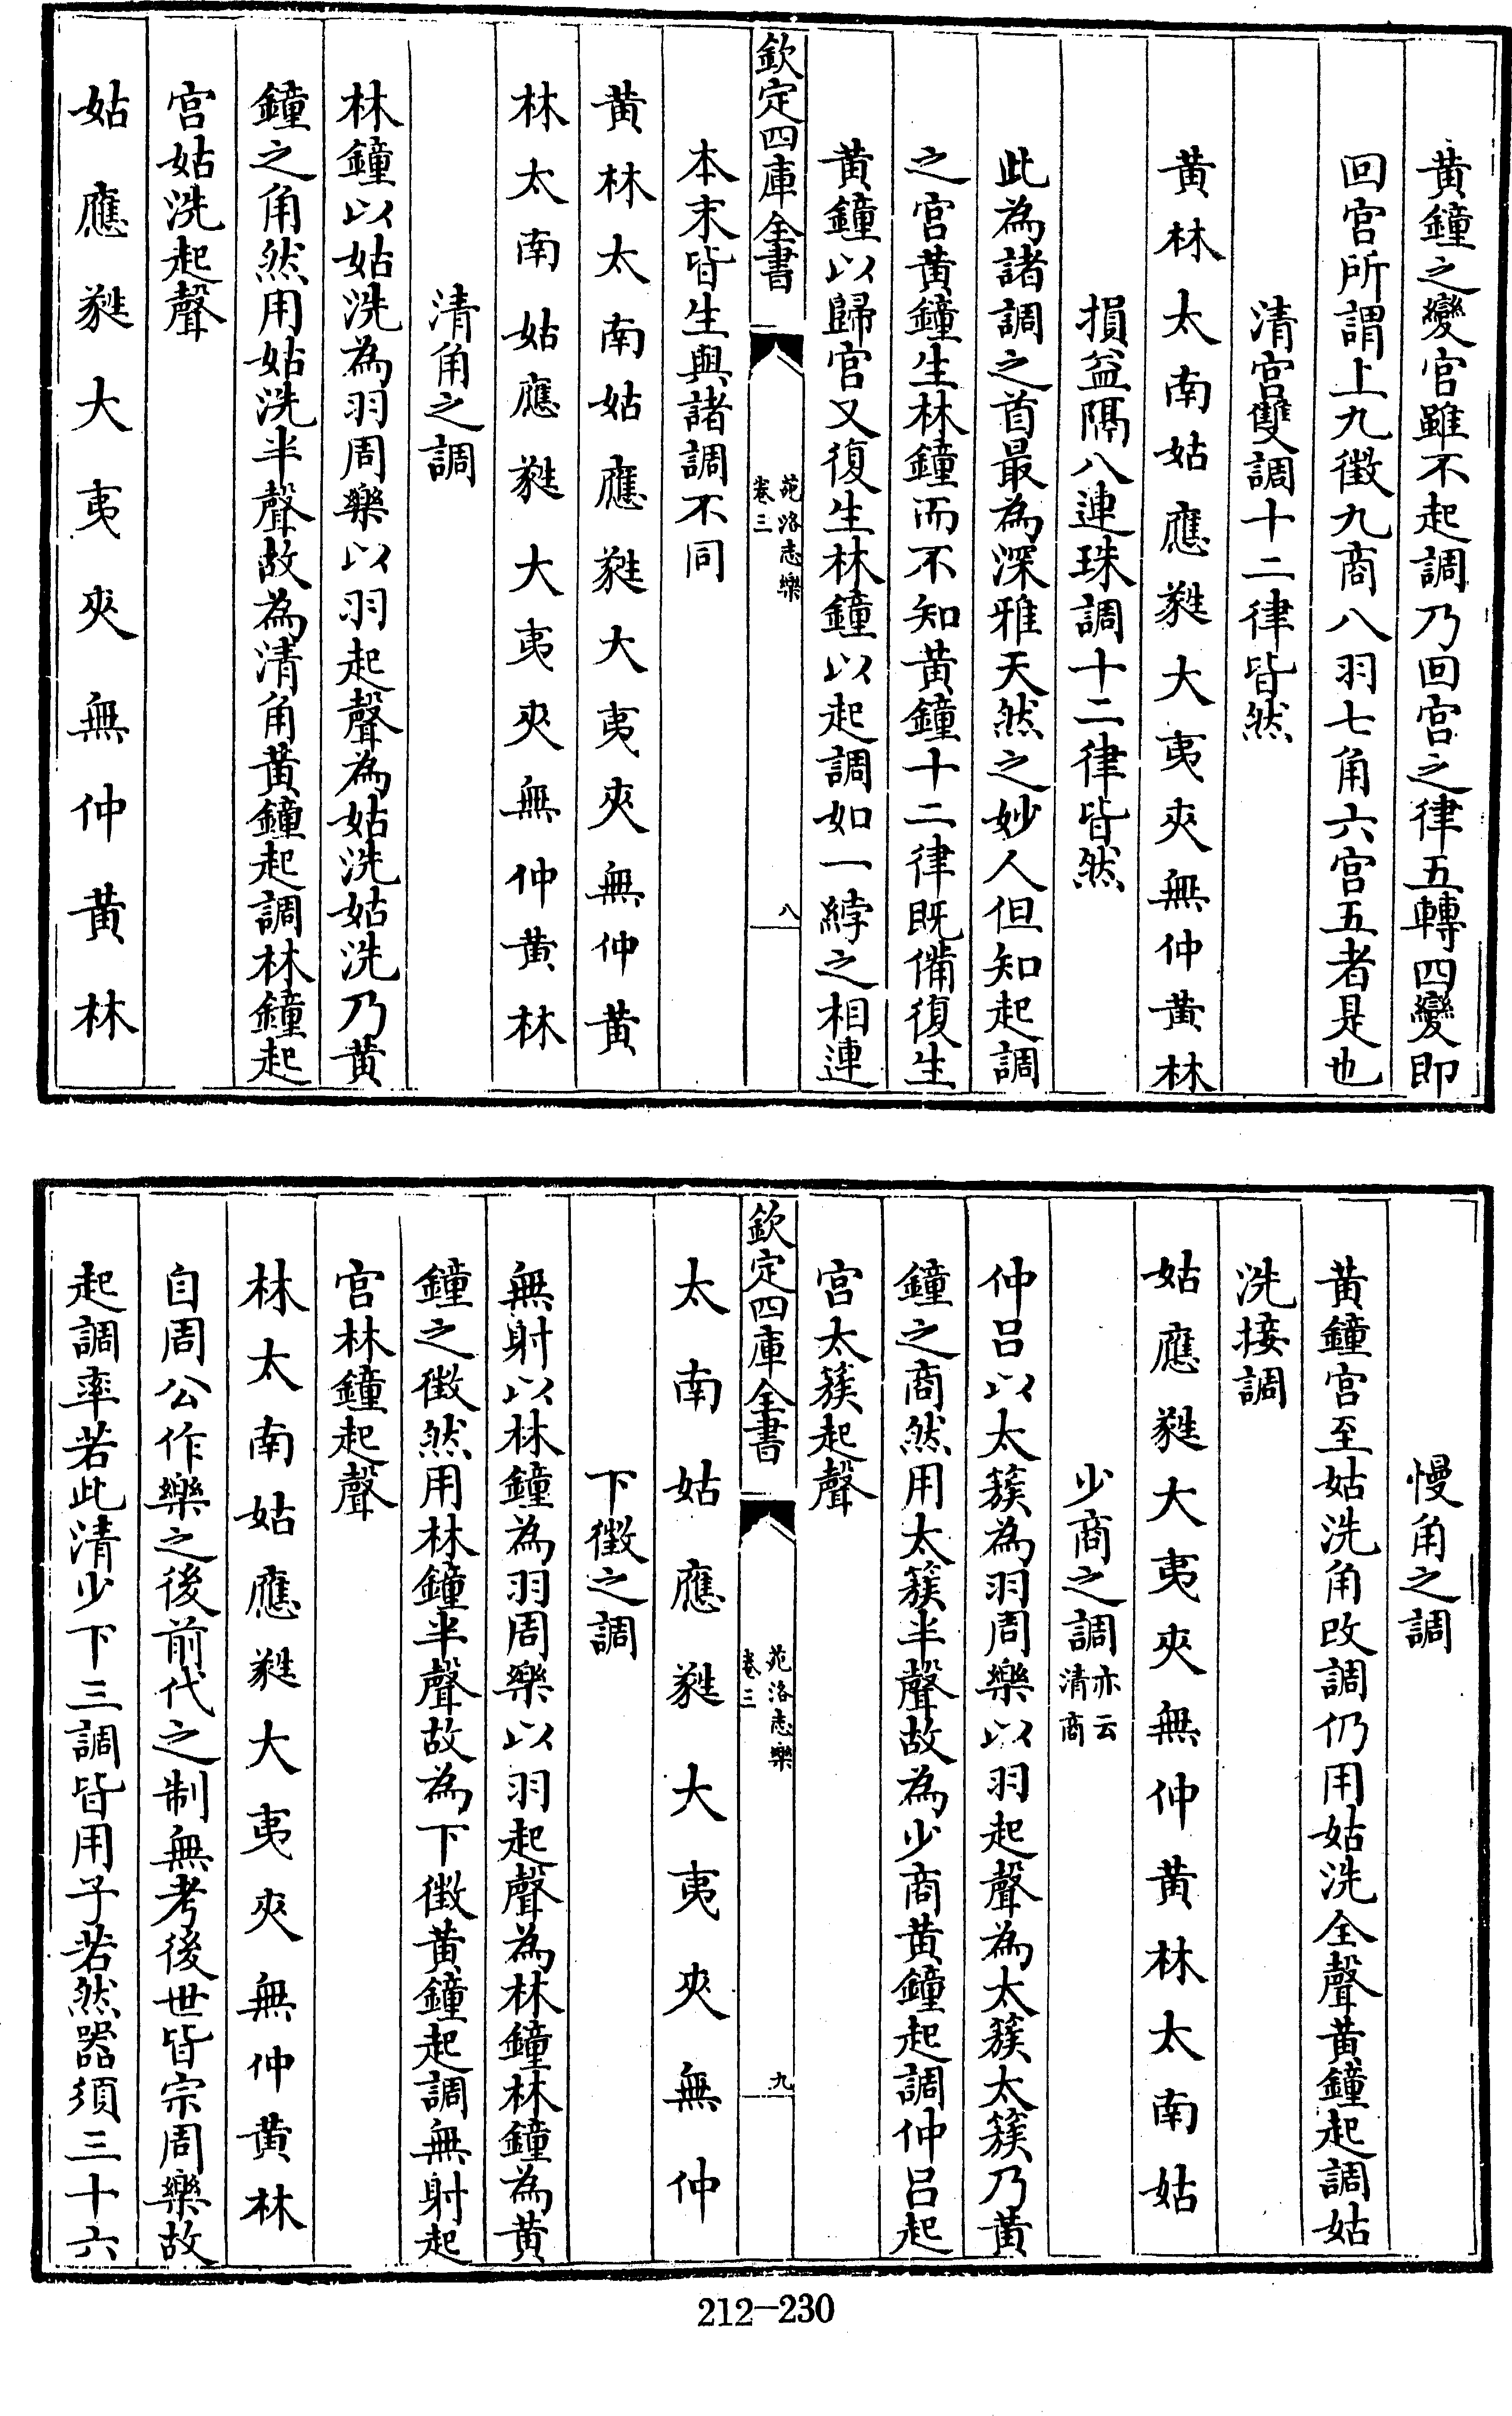 黃鐘之變宮雖不起調乃回宮之律五轉四變即
回宮所謂上九徵九商八羽七角六宮五者是也
清宮雙調十二律皆然
黃林太南姑應蕤大夷夾無仲黃林
損益隔八連珠調十二律皆然
此為諸調之首最為深雅天然之妙人但知起調
之宮黃鐘生林鐘而不知黃鐘十二律既備復生
黃鐘以歸宮又復生林鐘以起調如一綍之相連
欽定四庫全書
苑洛志樂
卷三
八
本末皆生與諸調不同
黃林太南姑應蕤大夷夾無仲黃
林太南姑應蕤大夷夾無仲黃林
清角之調
林鐘以姑洗為羽周樂以羽起聲為姑洗姑洗乃黃
鐘之角然用姑洗半聲故為清角黃鐘起調林鐘起
宮姑洗起聲
姑應蕤大夷夾無仲黃林
慢角之調
黃鐘宮至姑洗角改調仍用姑洗全聲黃鐘起調姑
洗接調
姑應蕤大夷夾無仲黃林太南姑
少商之調亦云清商
仲呂以太簇為羽周樂以羽起聲為太簇太簇乃黃
鐘之商然用太簇半聲故為少商黃鐘起調仲呂起
宮太簇起聲
欽定四庫全書
苑洛志樂
卷三
九
太南姑應蕤大夷夾無仲
下徵之調
無射以林鐘為羽周樂以羽起聲為林鐘林鐘為黃
鐘之徵然用林鐘半聲故為下徵黃鐘起調無射起
宮林鐘起聲
林太南姑應蕤大夷夾無仲黃林
自周公作樂之後前代之制無考後世皆宗周樂故
起調率若此清少下三調皆用子若然器須三十六
212-230